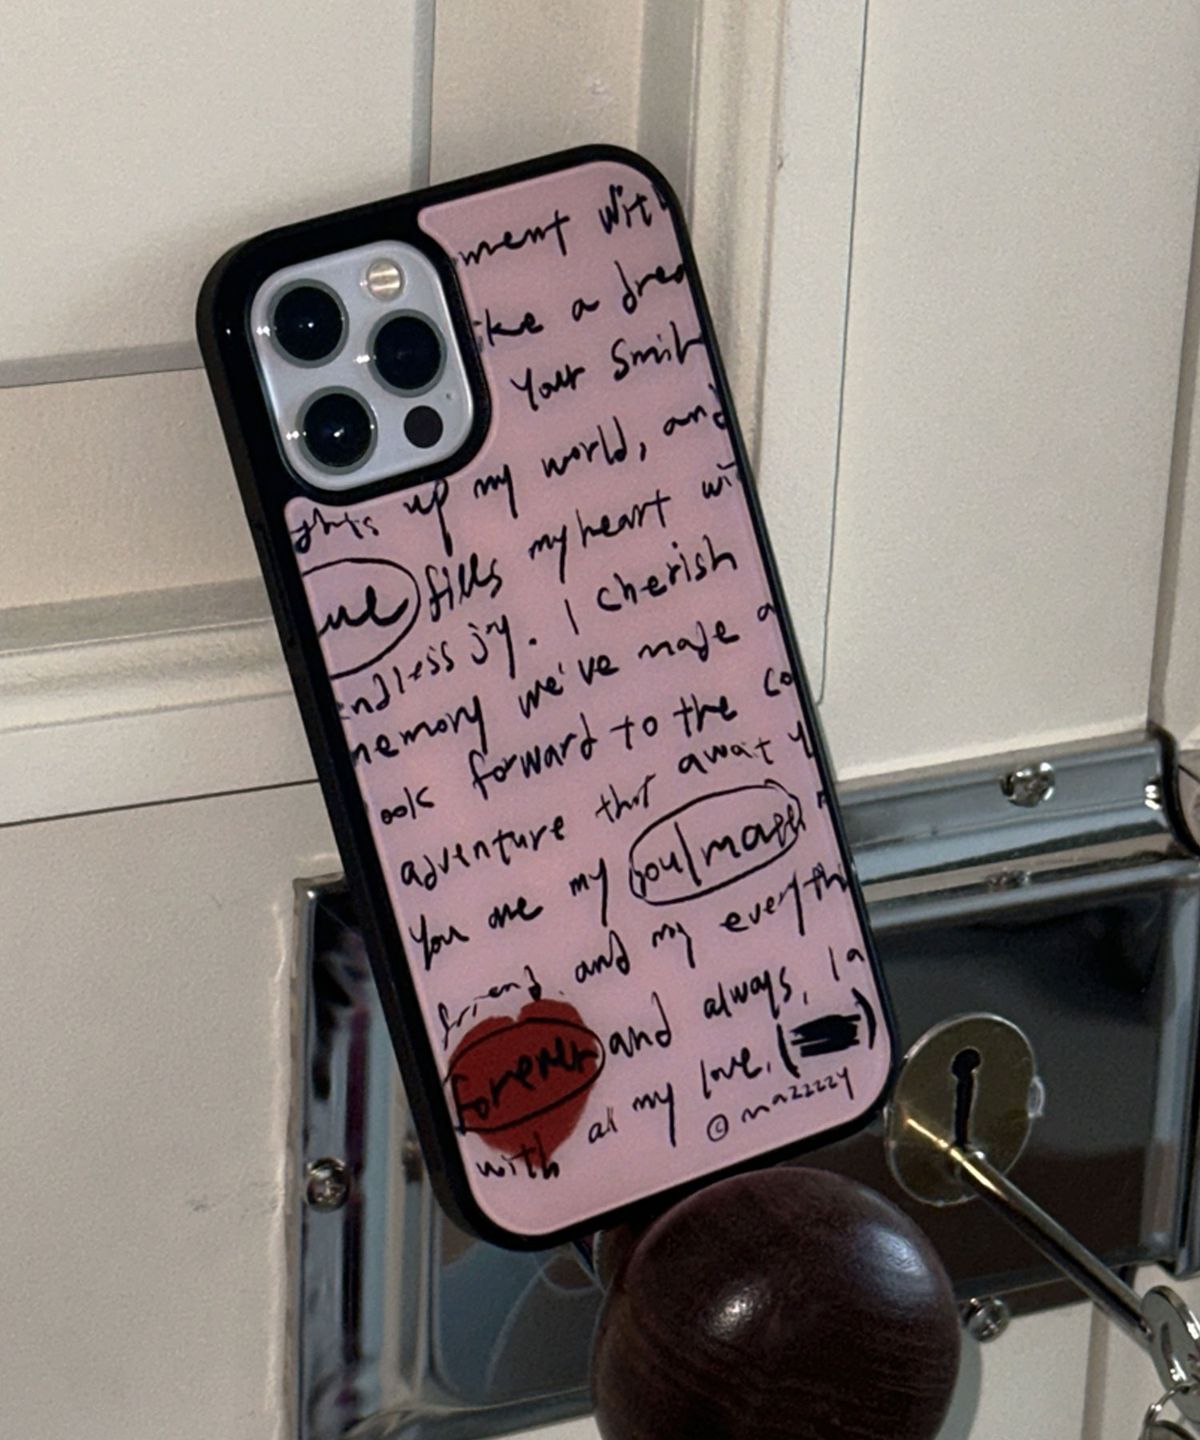 ment with
ke a drea
Your Smil
ghts up my world, and
fills my heart wi
endless joy. I cherish
memory we've made a
ook forward to the co
adventure that await y
You are my soulmate
friend, and my everythi
forever and always, I a
with all my love, (
© mazzzzy